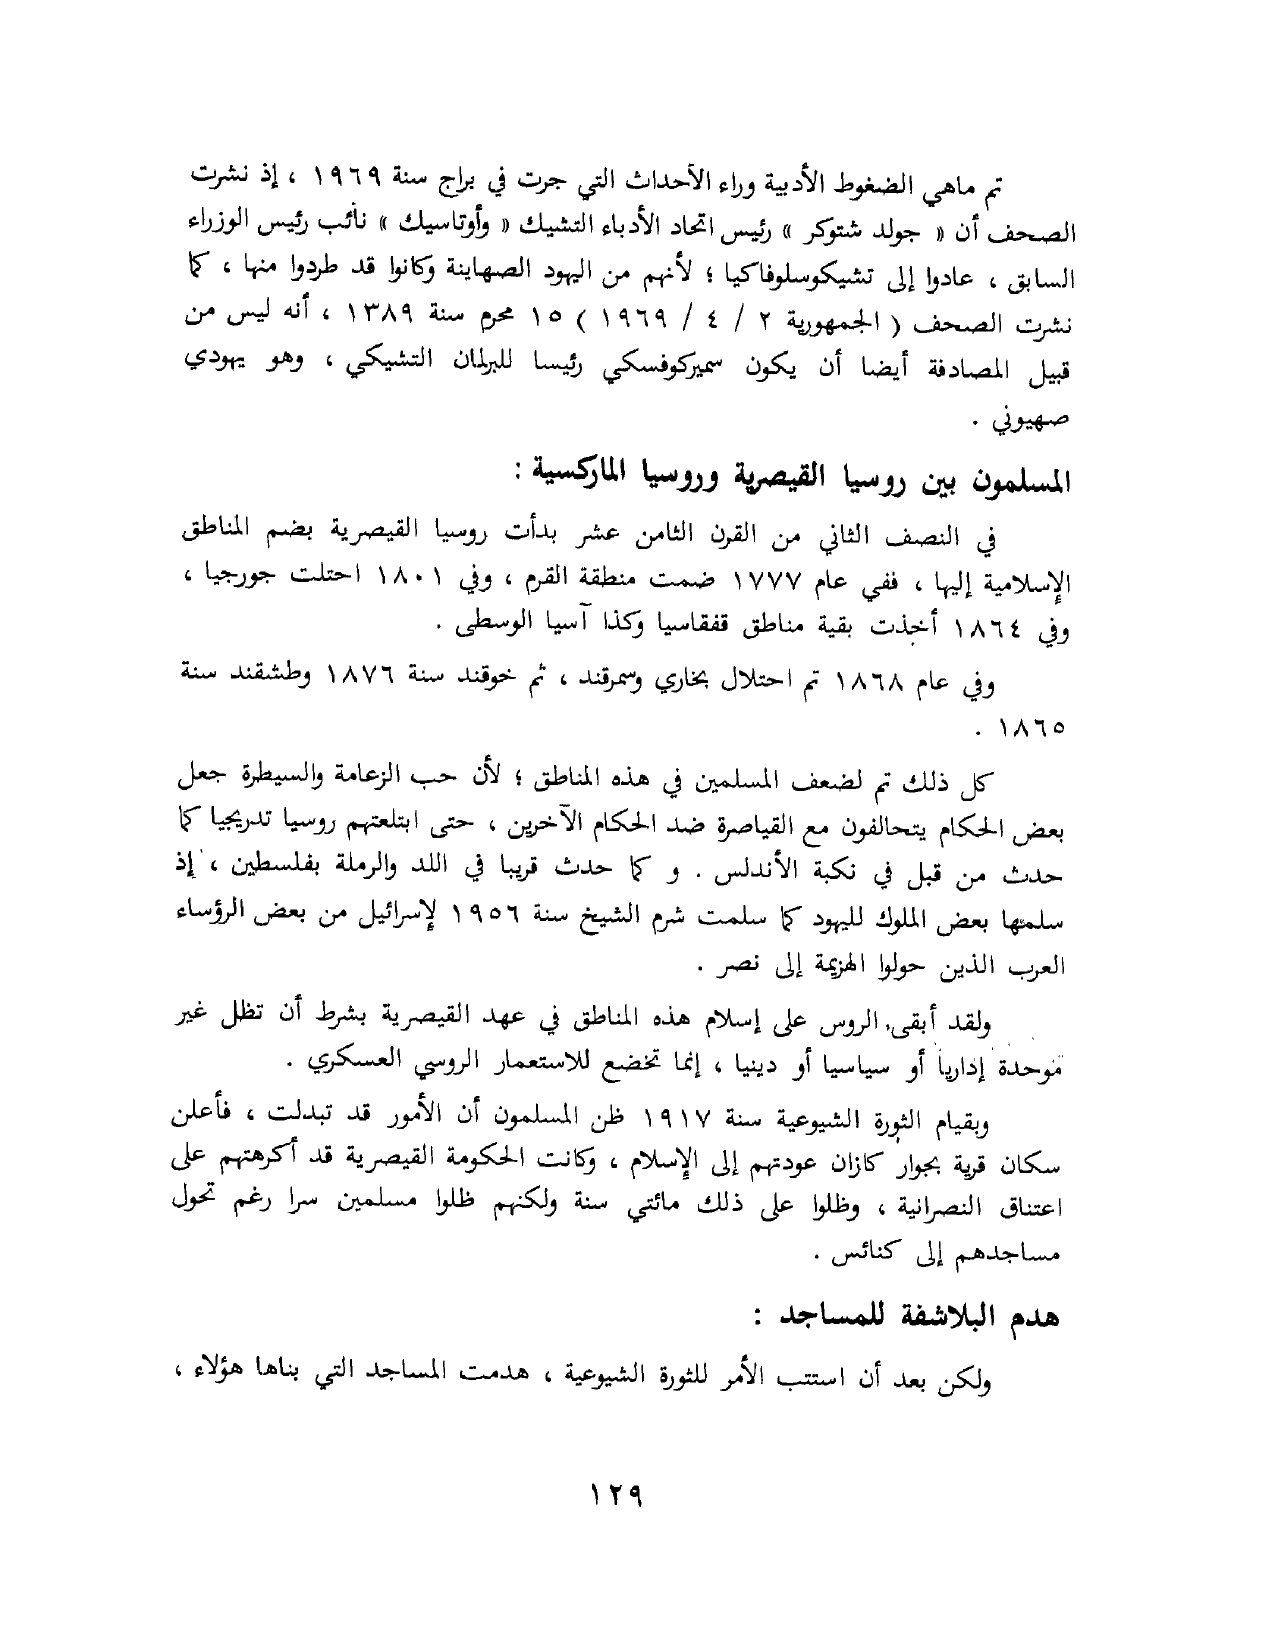 تم ماهي الضغوط الأدبية وراء الآحداث التي جرت في براج سنة ١٩٦٩ ، إذ نشرت
الصحف أن « جولد شتوكر » رئيس اتحاد الأدباء التشيك « وأوتاسيك » نائب رئيس الوزراء
السابق ، عادوا إلى تشيكوسلوفاكيا ؛ لأنهم من اليهود الصهاينة وكانوا قد طردوا منها ، كما
نشرت الصحف ( الجمهورية ٢ / ٤ / ١٩٦٩ ) ١٥ محرم سنة ١٣٨٩ ، أنه ليس من
قبيل المصادفة أيضا أن يكون سميركوفسكي رئيسا للبرلمان التشيكي ، وهو يهودي
صهيوني .
المسلمون بين روسيا القيصرية وروسيا الماركسية :
في النصف الثاني من القرن الثامن عشر بدأت روسيا القيصرية بضم المناطق
الإسلامية إليها ، ففي عام ١٧٧٧ ضمت منطقة القرم ، وفي ١٨٠١ احتلت جورجيا ،
وفي ١٨٦٤ أخذت بقية مناطق قفقاسيا وكذا آسيا الوسطى .
وفي عام ١٨٦٨ تم احتلال بخاري وسمرقند ، ثم خوقند سنة ١٨٧٦ وطشقند سنة
١٨٦٥ .
كل ذلك تم لضعف المسلمين في هذه المناطق ؛ لأن حب الزعامة والسيطرة جعل
بعض الحكام يتحالفون مع القياصرة ضد الحكام الآخرين ، حتى ابتلعتهم روسيا تدريجيا كما
حدث من قبل في نكبة الأندلس . و كما حدث قريبا في اللد والرملة بفلسطين ، إذ
سلمتها بعض الملوك لليهود كما سلمت شرم الشيخ سنة ١٩٥٦ لإسرائيل من بعض الرؤساء
العرب الذين حولوا الهزيمة إلى نصر .
ولقد أبقى الروس على إسلام هذه المناطق في عهد القيصرية بشرط أن تظل غير
موحدة إداريا أو سياسيا أو دينيا ، إنما تخضع للاستعمار الروسي العسكري .
وبقيام الثورة الشيوعية سنة ١٩١٧ ظن المسلمون أن الأمور قد تبدلت ، فأعلن
سكان قرية بجوار كازان عودتهم إلى الإسلام ، وكانت الحكومة القيصرية قد أكرهتهم على
اعتناق النصرانية ، وظلوا على ذلك مائتي سنة ولكنهم ظلوا مسلمين سرا رغم تحول
مساجدهم إلى كنائس .
هدم البلاشفة للمساجد :
ولكن بعد أن استتب الأمر للثورة الشيوعية ، هدمت المساجد التي بناها هؤلاء ،
١٢٩